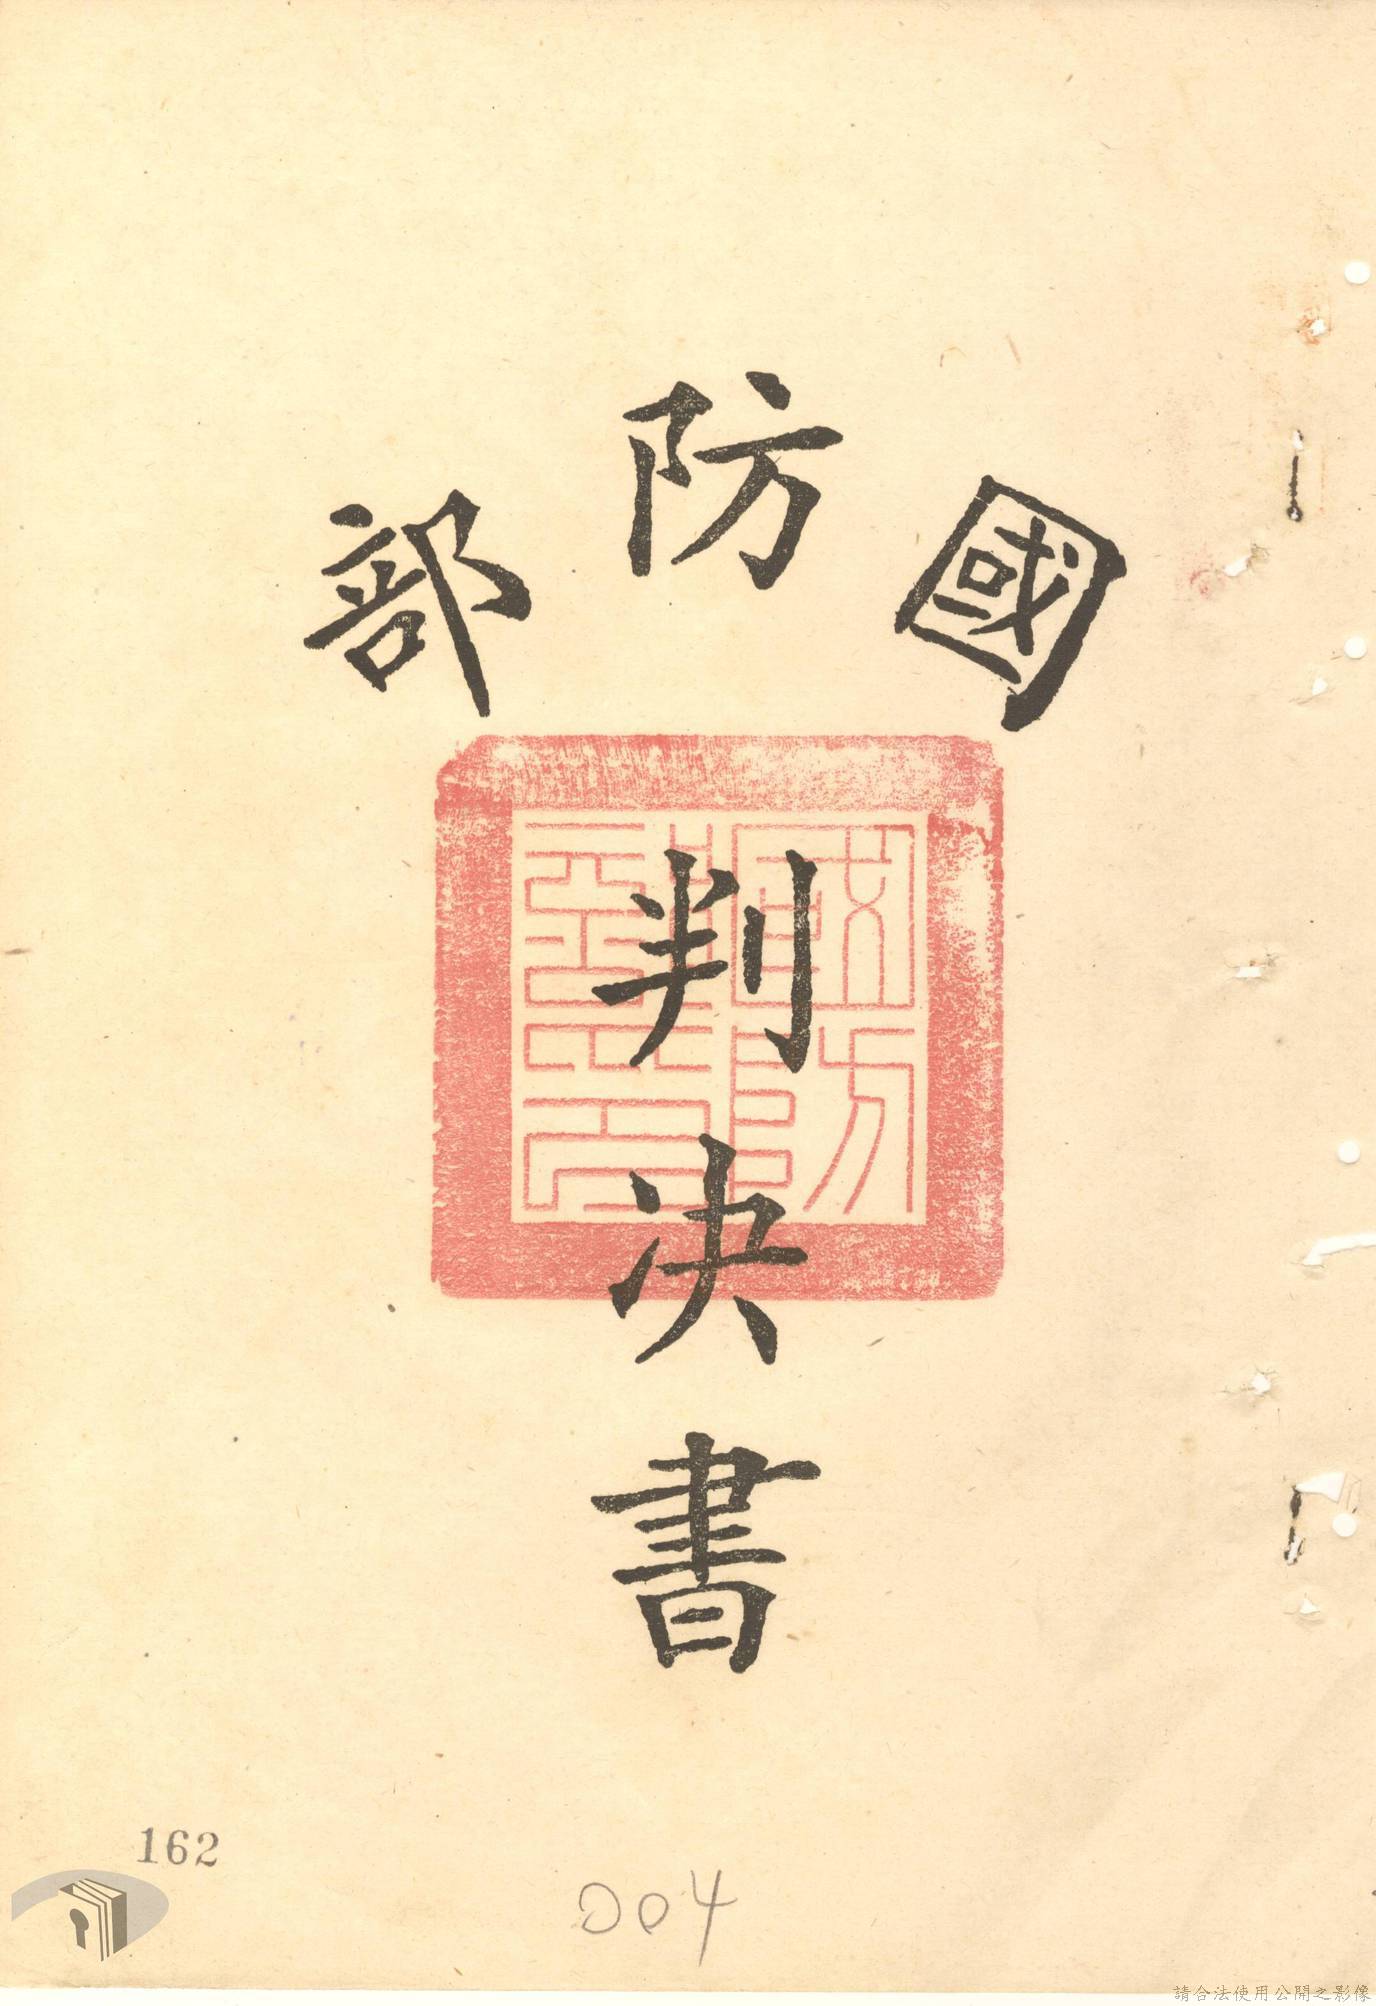 國防部
判決書
國防部印
162
004
請合法使用公開之影像